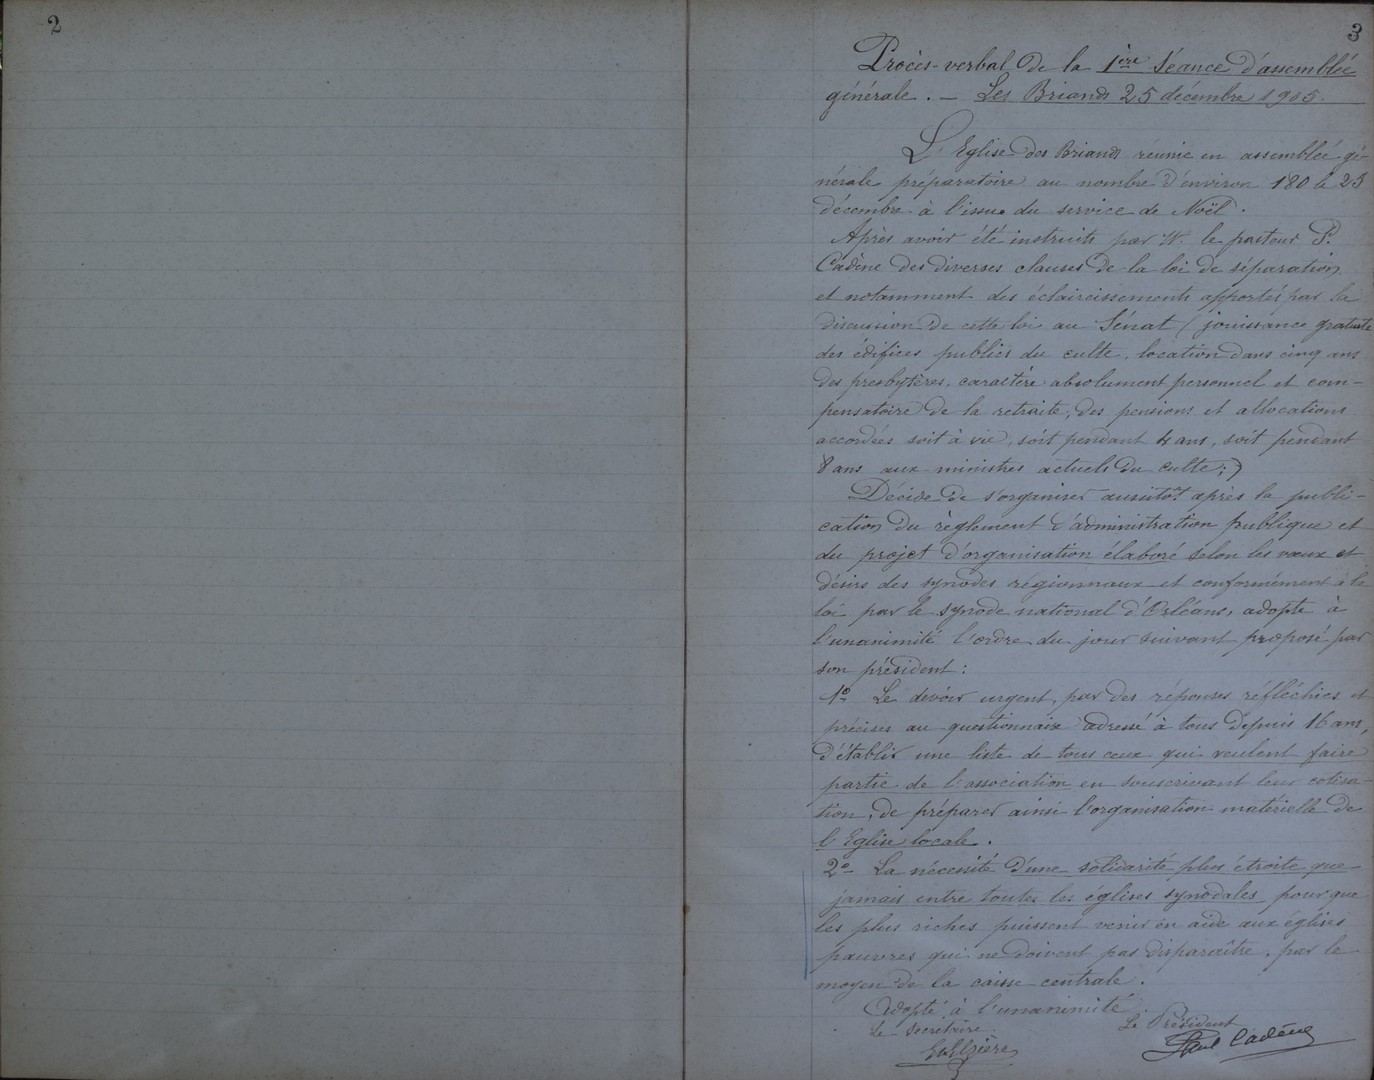 2
3
Procès-verbal de la 1ère Séance d'assemblée
générale. — Les Briands 25 décembre 1905.
L'Eglise des Briands réunie en assemblée gé-
nérale préparatoire au nombre d'environ 180 le 25
décembre à l'issue du service de Noël.
Après avoir été instruits par M. le pasteur P.
Cadène des diverses clauses de la loi de séparation
et notamment des éclaircissements apportés par la
discussion de cette loi au Sénat (jouissance gratuite
des édifices publics du culte, location dans cinq ans
des presbytères, caractère absolument personnel et com-
pensatoire de la retraite, des pensions et allocations
accordées soit à vie, soit pendant 4 ans, soit pendant
8 ans aux ministres actuels du culte;)
Décide de s'organiser aussitôt après la publi-
cation du règlement d'administration publique et
du projet d'organisation élaboré selon les vœux et
désirs des synodes régionnaux et conformément à la
loi par le synode national d'Orléans, adopte à
l'unanimité l'ordre du jour suivant proposé par
son président:
1o Le devoir urgent, par des réponses réfléchies et
précises au questionnaire adressé à tous depuis 16 ans,
d'établir une liste de tous ceux qui veulent faire
partie de l'association en souscrivant leur cotisa-
tion, de préparer ainsi l'organisation matérielle de
l'Eglise locale.
2o La nécessité d'une solidarité plus étroite que
jamais entre toutes les églises synodales pour que
les plus riches puissent venir en aide aux églises
pauvres qui ne doivent pas disparaître, par le
moyen de la caisse centrale.
Adopté à l'unanimité
Le Secrétaire Le Président
Paul Cadène